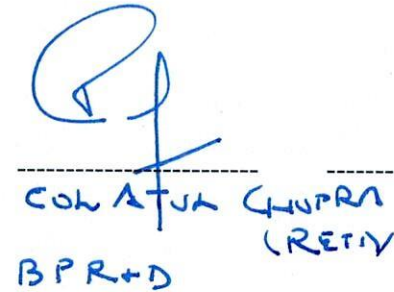 COL ATUL CHUPRA
(RETD)
BPR+D